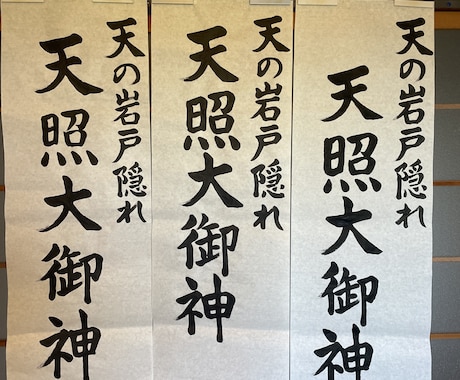 天の岩戸隠れ
天照大御神
天の岩戸隠れ
天照大御神
天の岩戸隠れ
天照大御神